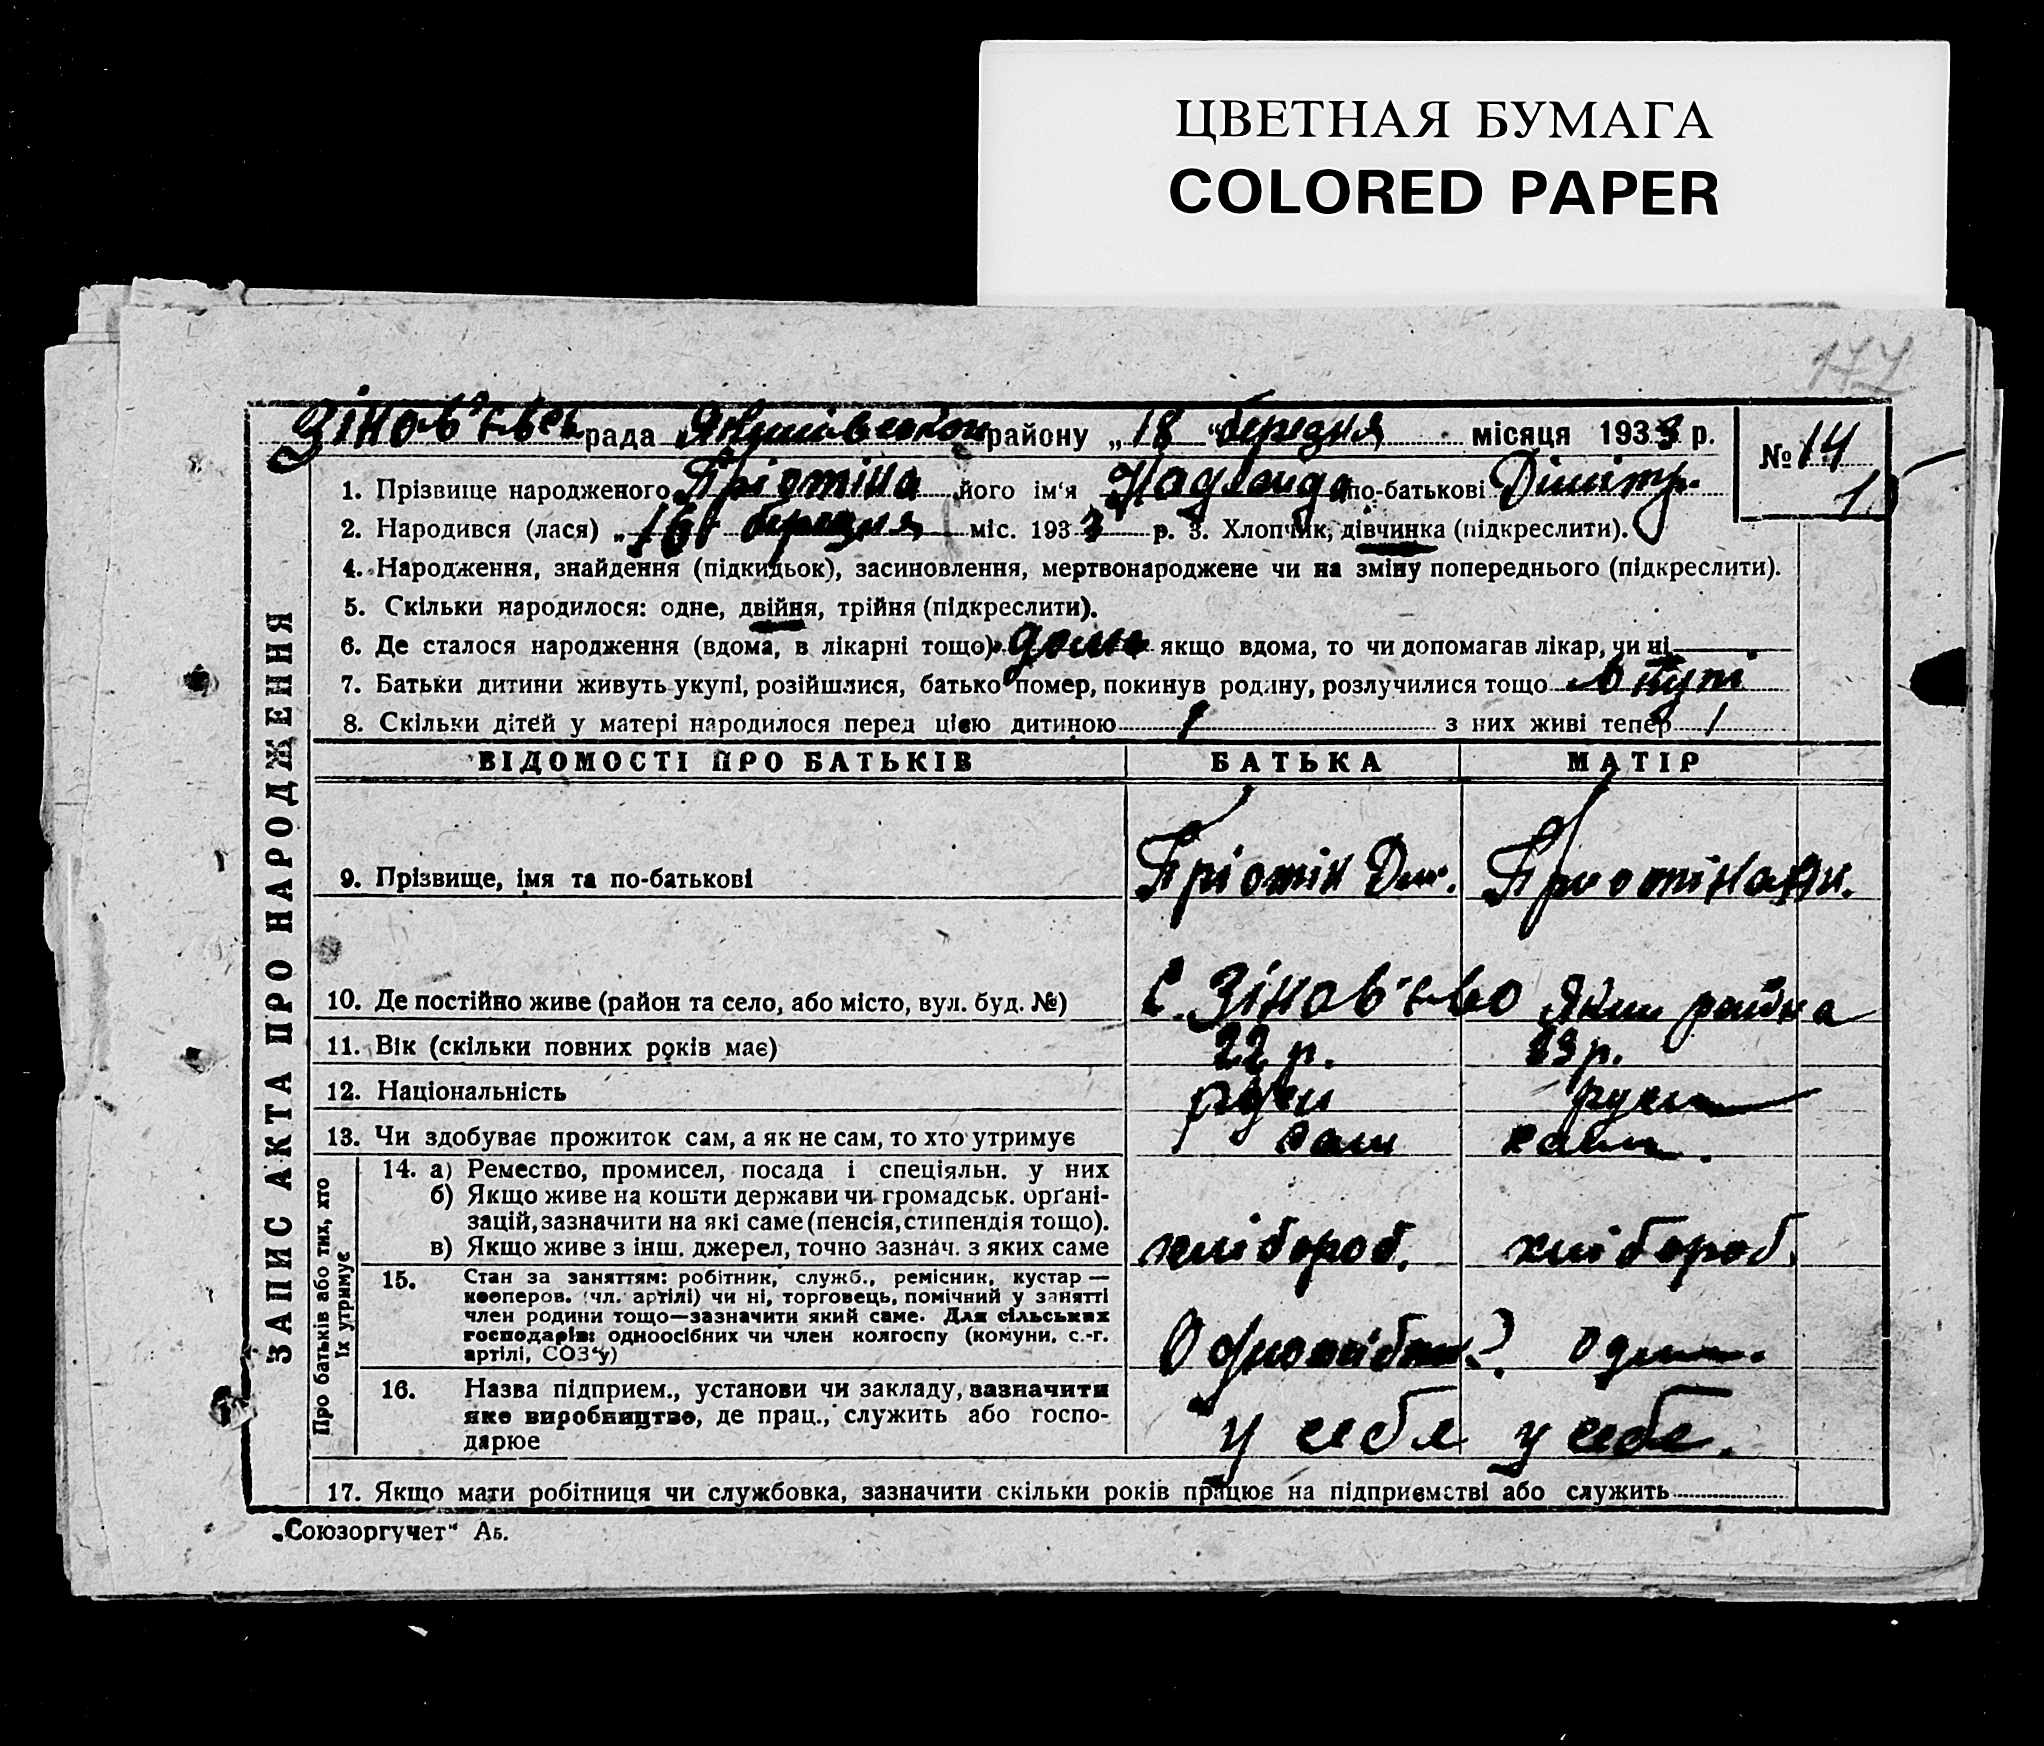 ЦВЕТНАЯ БУМАГА
COLORED PAPER
177
Зінов'євсь рада Якимівського району „18“ березня місяця 1933 р.
№ 14
1
1. Прізвище народженого Пріотіна його ім‘я Надєаида по-батькові Дімітр.
2. Народився (лася) „16“ березня міс. 1933 р. 3. Хлопчик, дівчинка (підкреслити).
4. Народження, знайдення (підкидьок), засиновлення, мертвонароджене чи на зміну попереднього (підкреслити).
5. Скільки народилося: одне, двійня, трійня (підкреслити).
6. Де сталося народження (вдома, в лікарні тощо) дома якщо вдома, то чи допомагав лікар, чи ні
7. Батьки дитини живуть укупі, розійшлися, батько помер, покинув родину, розлучилися тощо
8. Скільки дітей у матері народилося перед цією дитиною 1 з них живі тепер 1
ВІДОМОСТІ ПРО БАТЬКІВ БАТЬКА МАТІР
9. Прізвище, імя та по-батькові Пріотін Дм. Приотіна Ан.
10. Де постійно живе (район та село, або місто, вул. буд. №) с. Зінов'єво Яким района
11. Вік (скільки повних років має) 22 р. 23 р.
12. Національність руск руск
13. Чи здобуває прожиток сам, а як не сам, то хто утримує сам сам.
14. а) Ремество, промисел, посада і спеціяльн. у них
б) Якщо живе на кошти держави чи громадськ. орґані-
зацій, зазначити на які саме (пенсія, стипендія тощо).
в) Якщо живе з інш. джерел, точно зазнач. з яких саме хлібороб. хлібороб.
15. Стан за заняттям: робітник, служб., ремісник, кустар —
кооперов. (чл. артілі) чи ні, торговець, помічний у занятті
член родини тощо—зазначити який саме. Для сільських
господарів: одноосібних чи член колгоспу (комуни, с.-г.
артілі, СОЗ‘у) Одноосібн. один.
16. Назва підприєм., установи чи закладу, зазначити
яке виробництво, де прац., служить або госпо-
дарює у себя у себе.
17. Якщо мати робітниця чи службовка, зазначити скільки років працює на підприємстві або служить
ЗАПИС АКТА ПРО НАРОДЖЕННЯ
Про батьків або тих, хто
їх утримує
„Союзоргучет“ Аб.